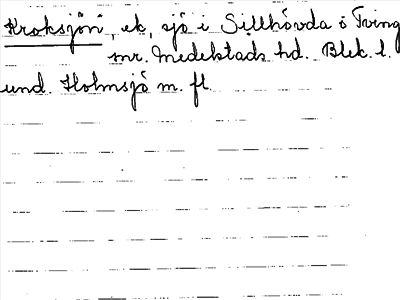 Kroksjön, ek, sjö i Sillhövda o Tving
snr. Medelstads hd. Blek. l.
und. Holmsjö m. fl.